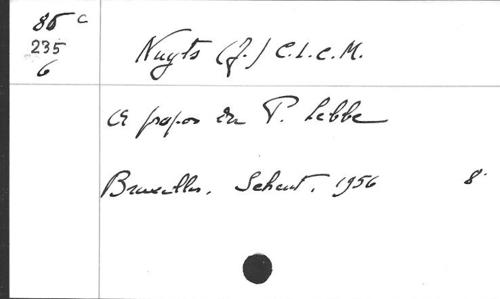 85 C
235
6
Nuyts (J.) C.I.C.M.
A propos du P. Lebbe
Bruxelles, Scheut, 1956 8°